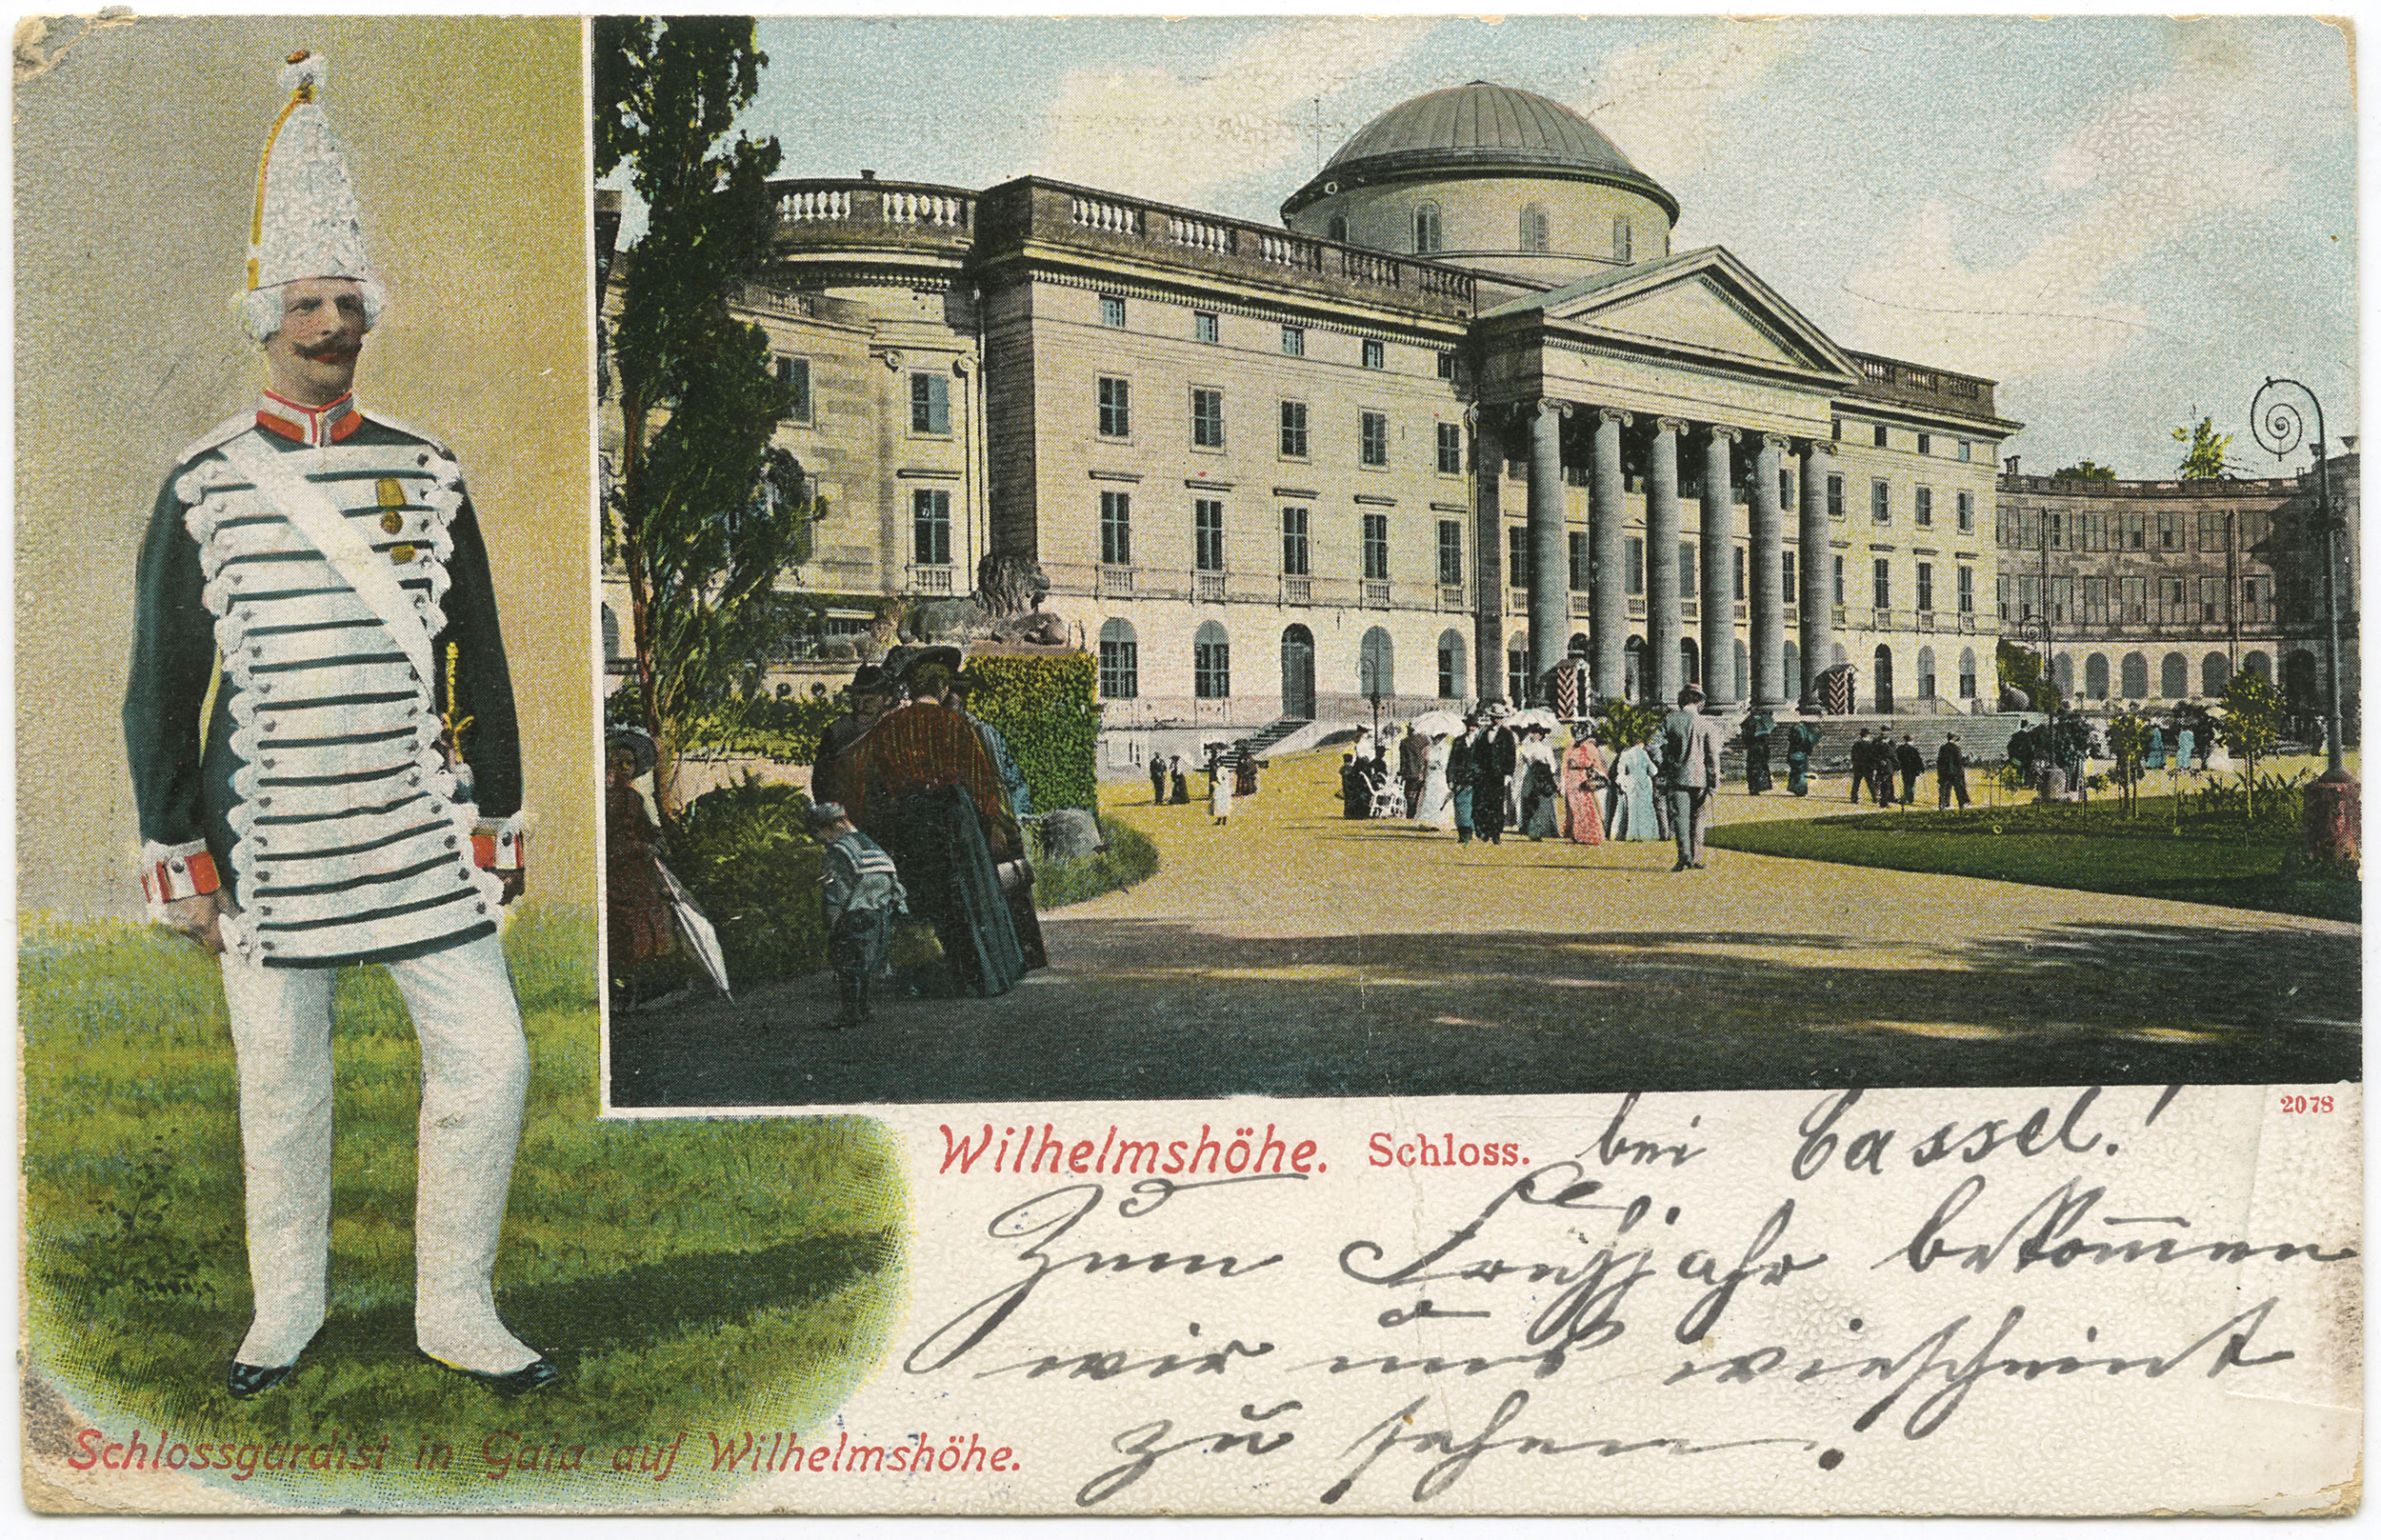 2078
Wilhelmshöhe. Schloss. bei Cassel!
Zum Frühjahr bekom̅en
wir uns wiescheint
zu sehen.
Schlossgardist in Gala auf Wilhelmshöhe.